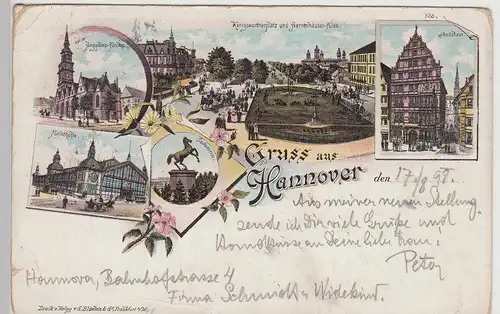 Aegidien-Kirche.
Königswortherplatz und Herrenhäuser-Allee.
Leibnizhaus.
Markthalle
Gruss aus
Hannover den 17/8 98.
Aus meiner neuen Stellung
sende ich Dir viele Grüße und
Handküsse an Deine liebe Frau.
Peter
Hannover, Bahnhofstrasse 4
Firma Schmidt & Widekind.
Druck u. Verlag v.